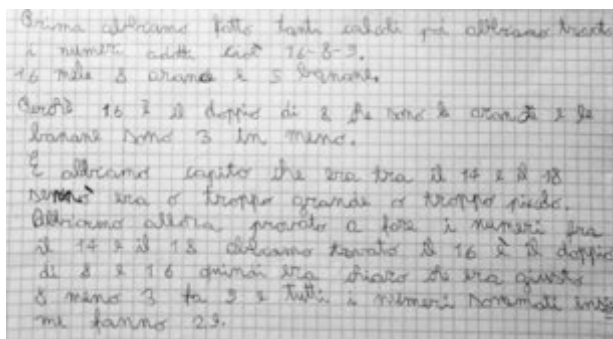 Prima abbiamo fatto tanti calcoli poi abbiamo trovato
i numeri adatti cioè 16-8-5.
16 mele 8 arance e 5 banane.
Perché 16 è il doppio di 8 che sono le arance e le
banane sono 3 in meno.
E abbiamo capito che era tra il 14 e il 18
sennò era o troppo grande o troppo piccolo.
Abbiamo allora provato a fare i numeri fra
il 14 e il 18 abbiamo trovato il 16 è il doppio
di 8 e 16 quindi era chiaro che era giusto
8 meno 3 fa 5 e tutti i numeri sommati insie
me fanno 29.